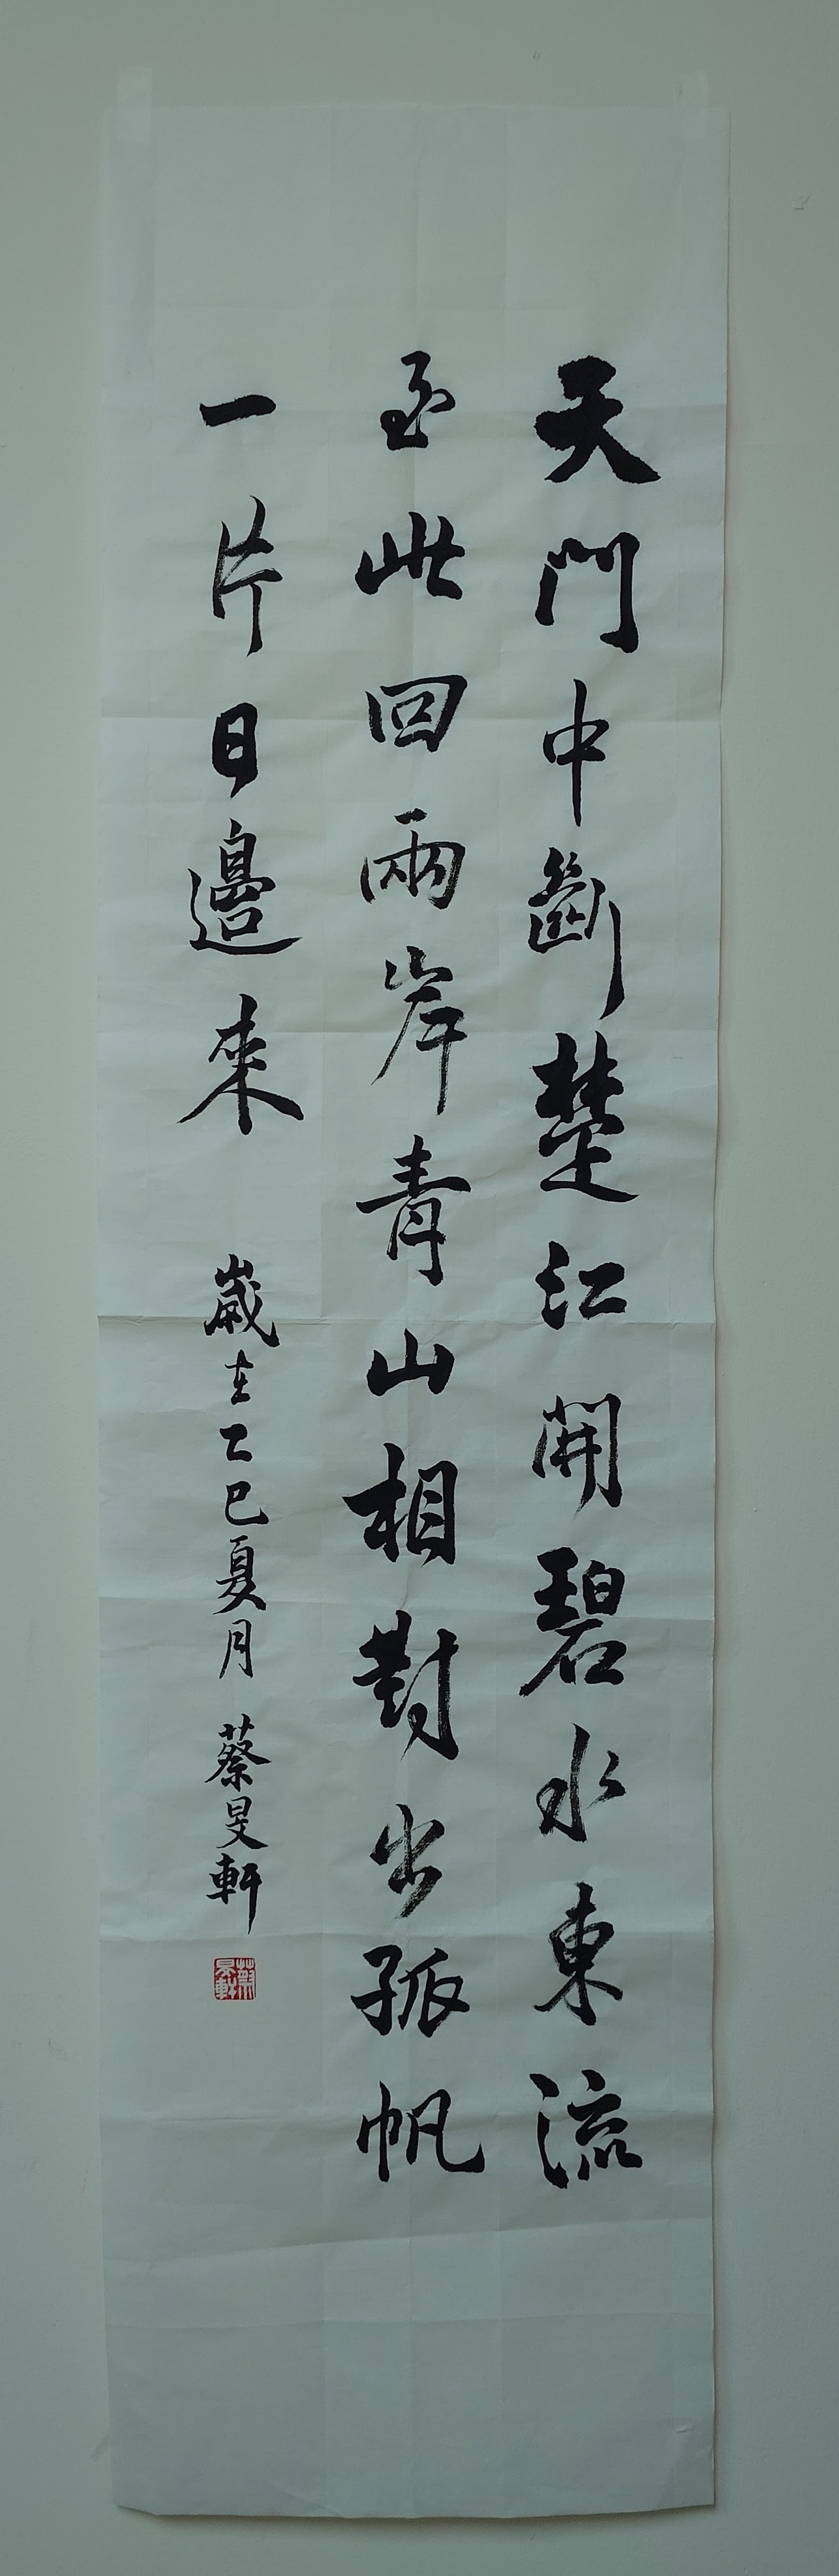 天門中斷楚江開碧水東流
至此回兩岸青山相對出孤帆
一片日邊來 歲在乙巳夏月 蔡旻軒
蔡旻軒